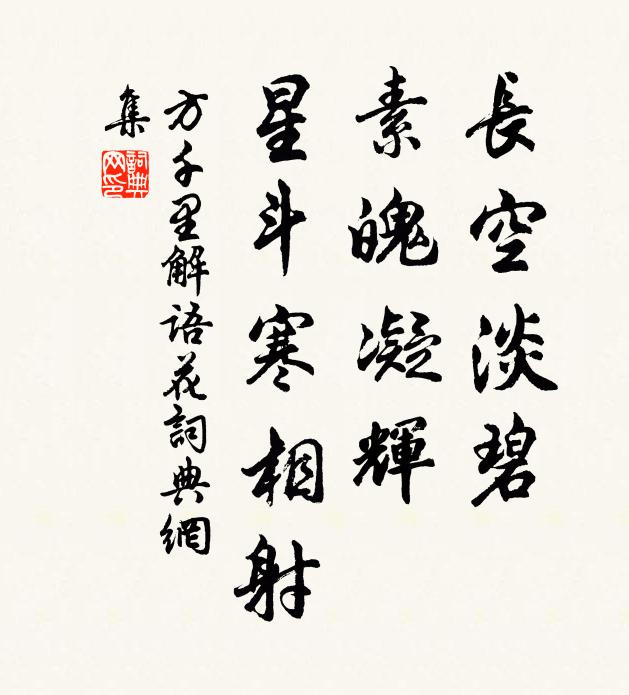 長空淡碧
素魄凝輝
星斗寒相射
方千里解語花詞典網
集
詞典
网印